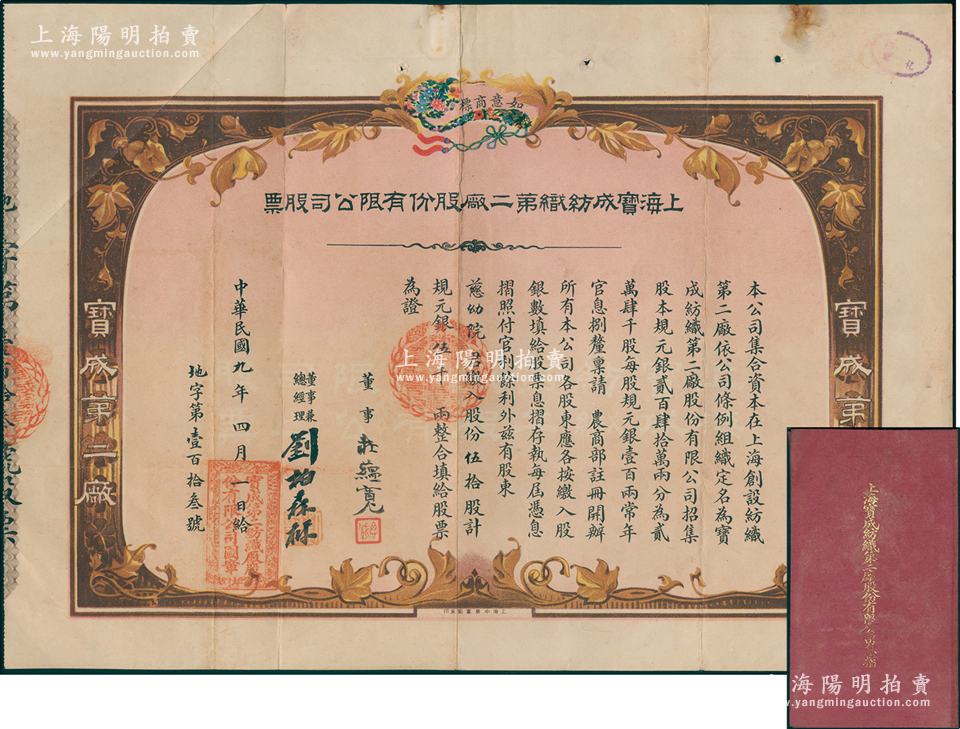 上海陽明拍賣
www.yangmingauction.com
如意商標
上海寶成紡織第二廠股份有限公司股票
本公司集合資本在上海創設紡織
第二廠依公司條例組織定名為寶
成紡織第二廠股份有限公司招集
股本規元銀貳百肆拾萬兩分為貳
萬肆千股每股規元銀壹百兩常年
官息捌釐稟請　農商部註冊開辦
所有本公司各股東應各按繳入股
銀數填給股票息摺存執每屆憑息
摺照付官利餘利外茲有股東
慈幼院　入股份伍拾股計
規元銀伍　兩整合填給股票
為證
董事 莊蘊寬
董事兼總經理 劉柏森
中華民國九年四月一日給
地字第壹百拾叁號
寶成第二廠
寶成第
上海陽明拍賣
www.yangmingauction.com
寶成第二紡織廠
份有限公司圖章
上海寶成紡織第二廠股份有限公司息摺
上海陽明拍賣
www.yangmingauction.com